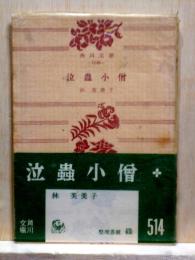 角川文庫
泣蟲小僧
林芙美子
泣蟲小僧
林芙美子
角川文庫
514